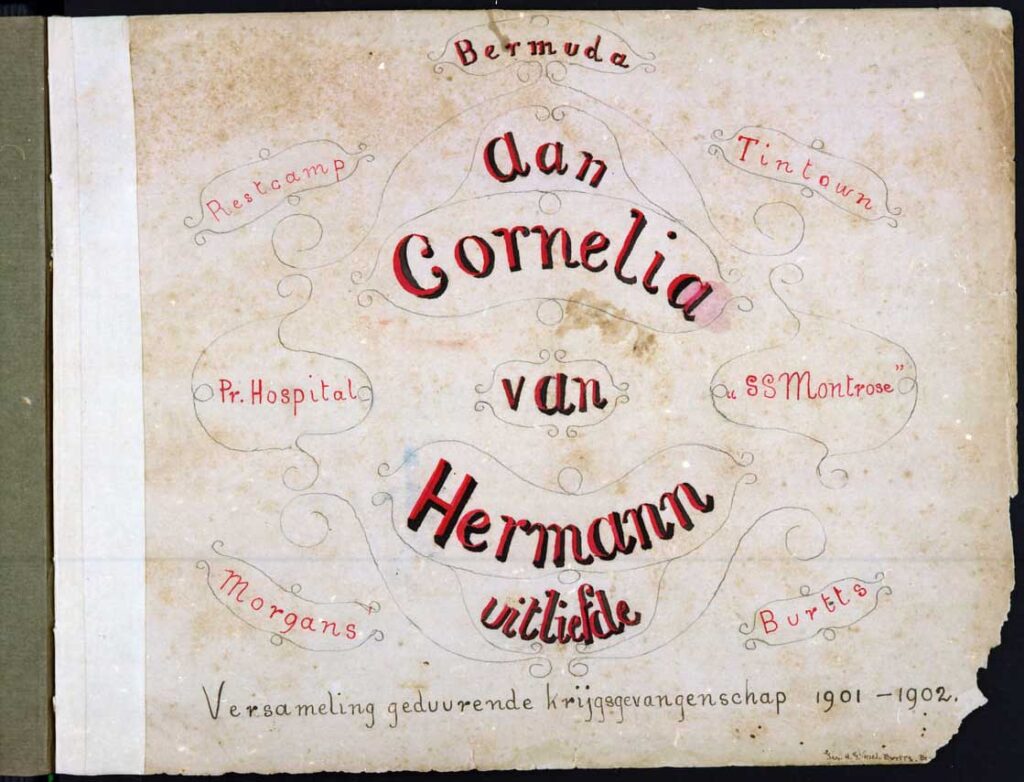 Bermuda
Restcamp
aan
Tintown
Cornelia
Pr. Hospital
van
„SS Montrose”
Hermann
Morgans
uitliefde
Burtts
Versameling geduurende krijgsgevangenschap 1901 – 1902.